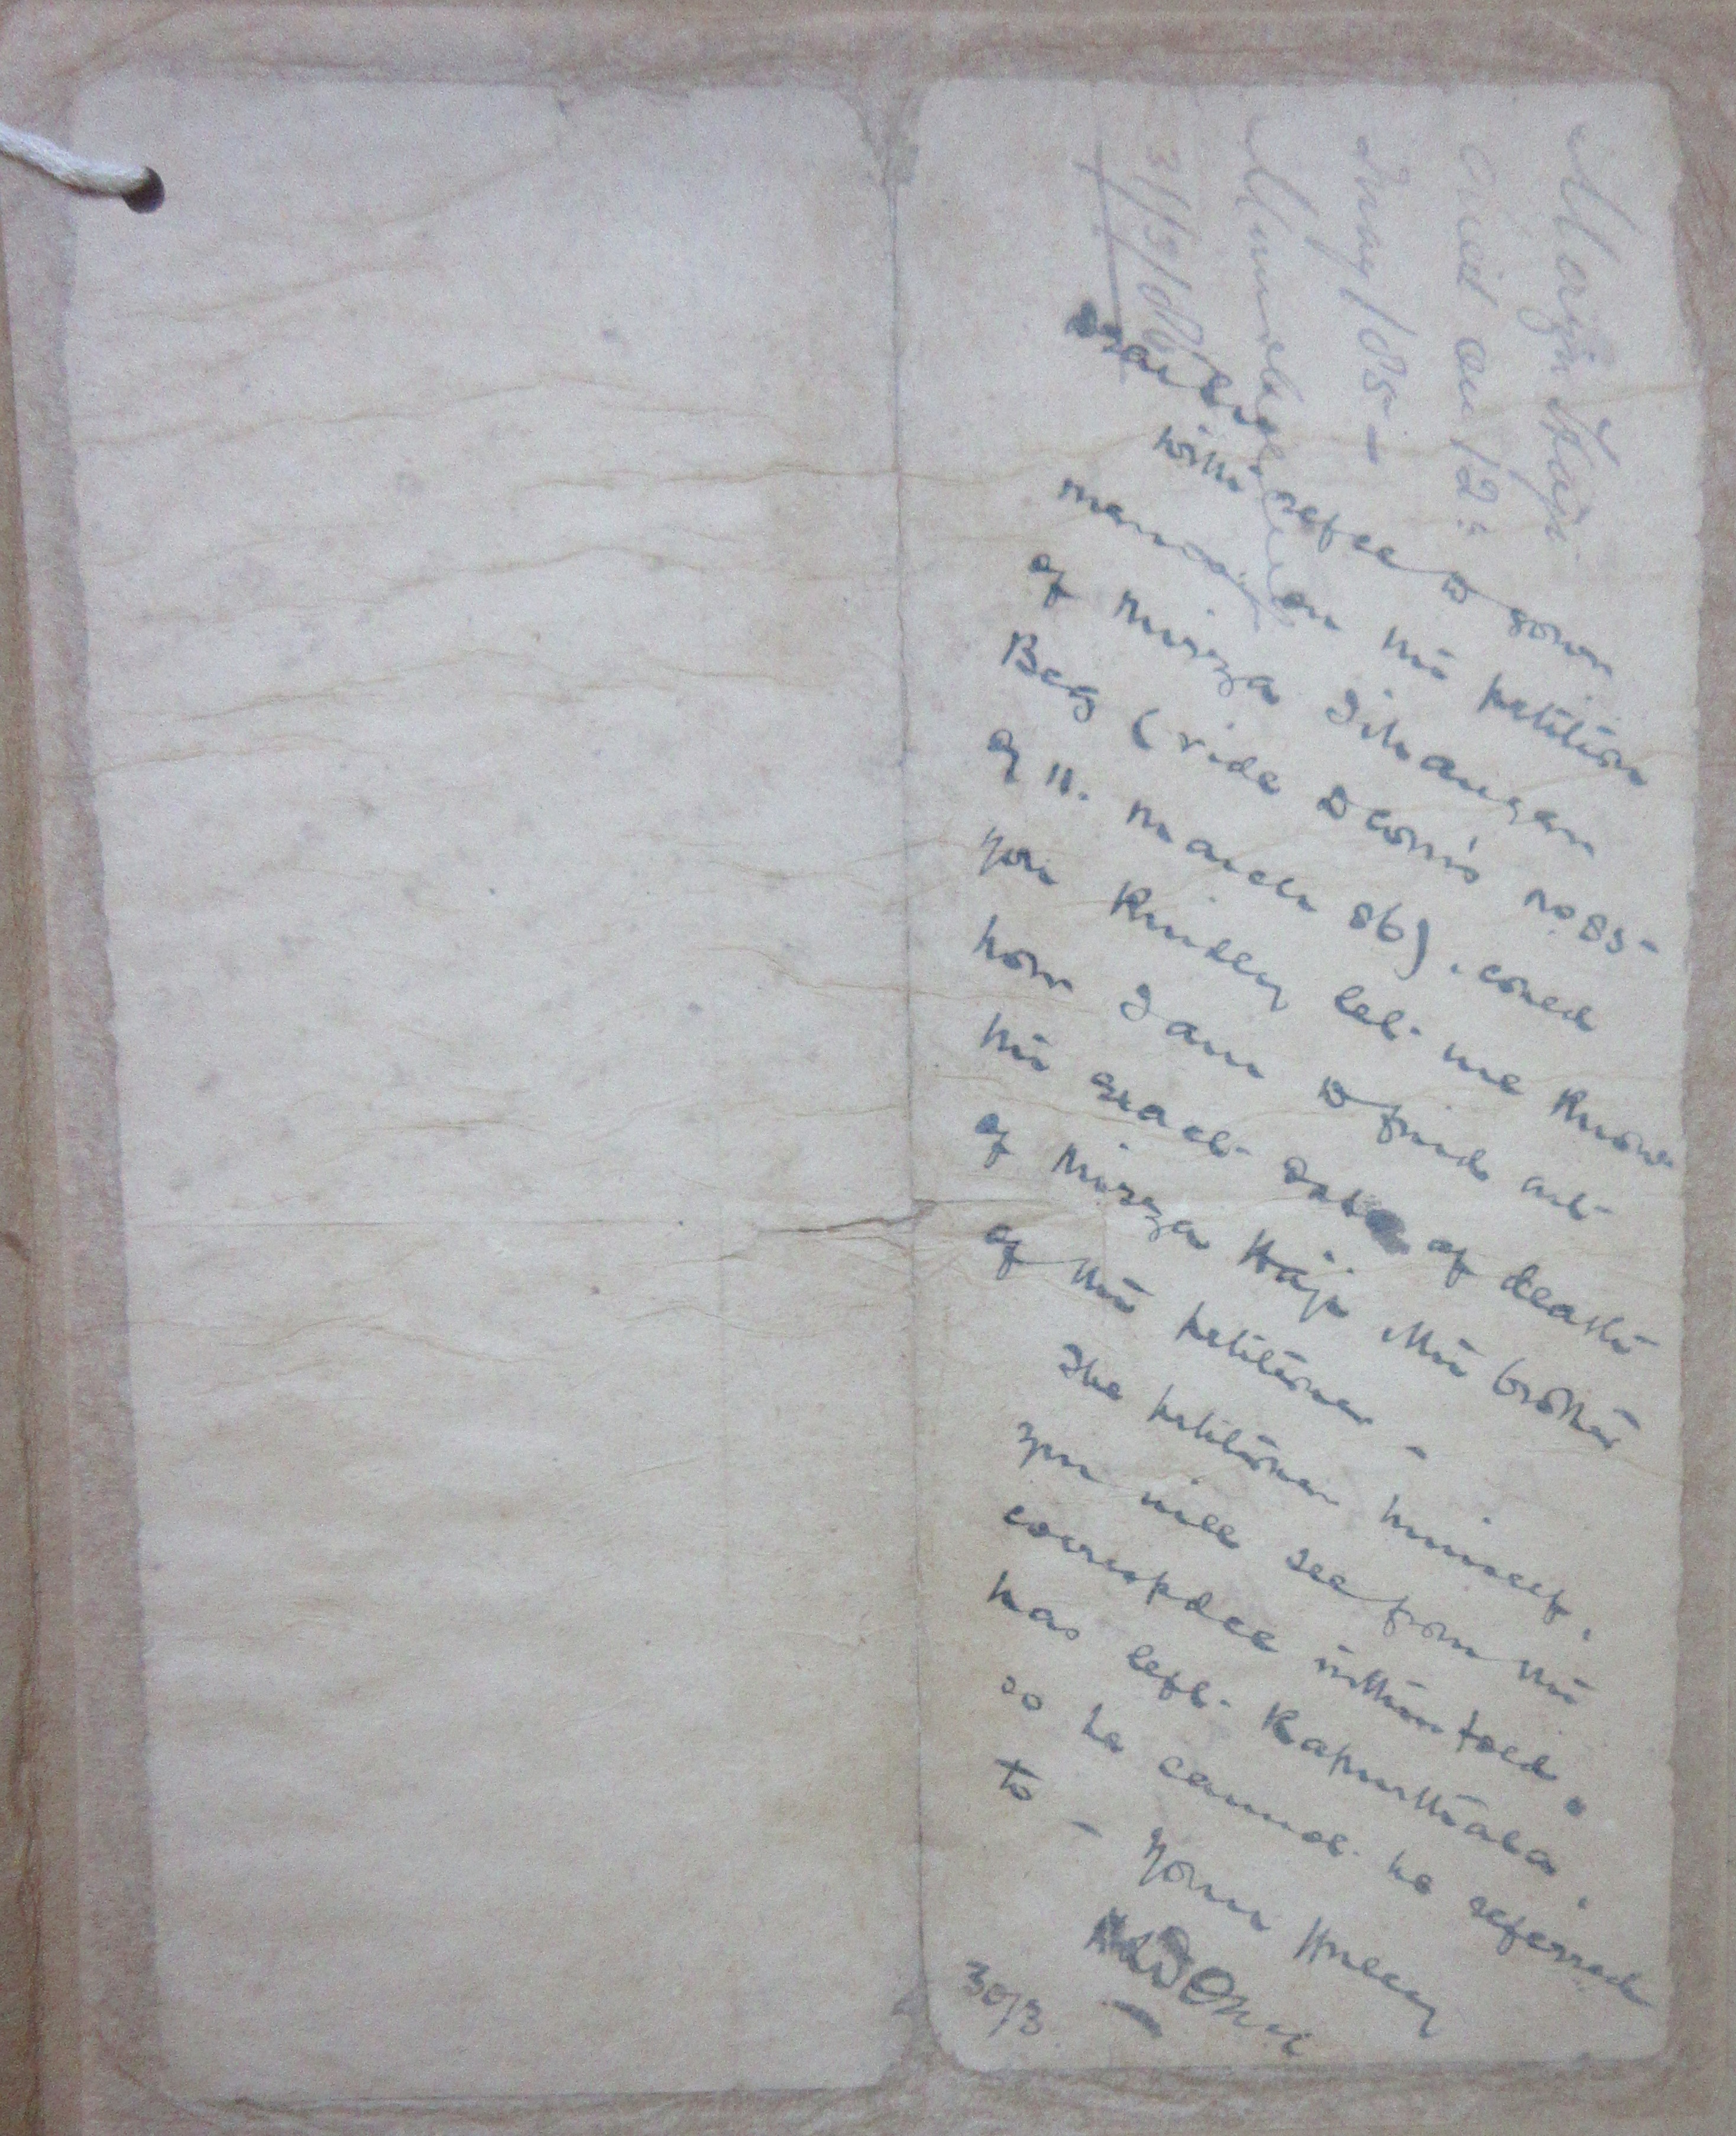 Dear Sir
With refce to your
memo: on the petition
of Mirza Jihangir
Beg (vide D Comr's no 85-
of 11. March 86). Could
you kindly let me know
how I am to find out
the exact date of death
of Mirza Haji the brother
of the petitioner -
The petitioner himself,
you will see from the
correspdce
has left Kapurthala,
so he cannot be referred
to - Yours truly
30/3
Haji
died on 12th
/85 -
31/3/86